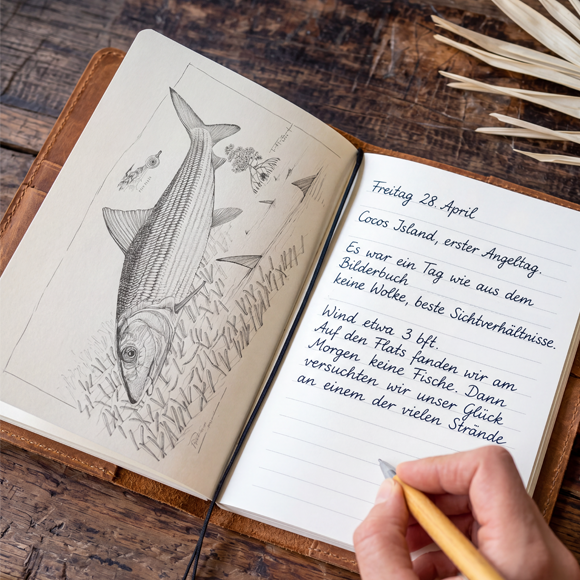 Freitag 28. April
Cocos Island, erster Angeltag.
Es war ein Tag wie aus dem
Bilderbuch
keine Wolke, beste Sichtverhältnisse.
Wind etwa 3 bft.
Auf den Flats fanden wir am
Morgen keine Fische. Dann
versuchten wir unser Glück
an einem der vielen Strände